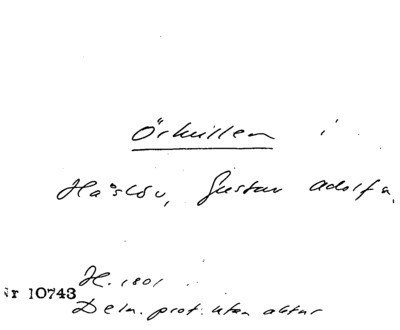 Örkullen i
Haslöv, Gustav Adolf a,
H. 1801
Nr 10743
Deln. prot. utan aktnr